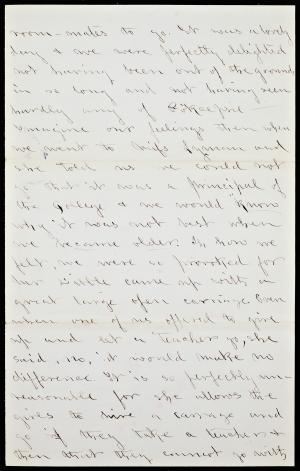 room-mates to go. It was a lovely
day & we were perfectly delighted
not having been out of the grounds
in so long and not having seen
hardly any of P'Keepsie
Imagine our feelings then when
we went to Miss Lyman and
she told us we could not
go that it was a principal of
the College & we would know
why it was not best when
we became older. So how we
felt, we were so provoked for
her came up with a
great large open carriage. Even
when one of us offered to give
up and let a teacher go, she
said, no, it would make no
difference. It is so perfectly un-
reasonable for she allows the
girls to hire a carriage and
go if they take a teacher &
then that they cannot go with